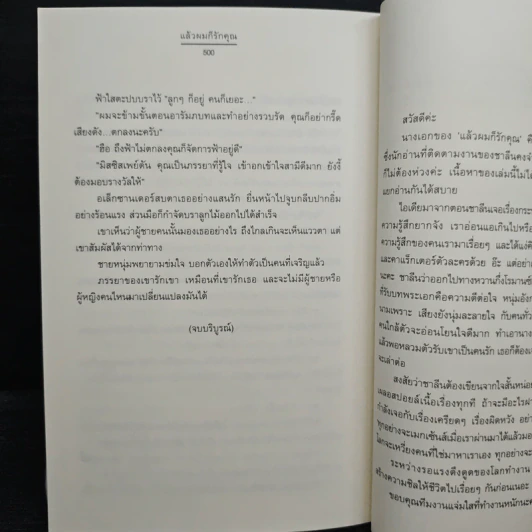 แล้วผมก็รักคุณ
500
ฟ้าใสตะปบบราไว้ "ลูกๆ ก็อยู่ คนก็เยอะ..."
"ผมจะข้ามขั้นตอนอารัมภบทและทำอย่างรวบรัด คุณก็อย่ากรี๊ด
เสียงดัง...ตกลงนะครับ"
"ฮือ ถึงฟ้าไม่ตกลงคุณก็จัดการฟ้าอยู่ดี"
"มิสซิสเพย์ตัน คุณเป็นภรรยาที่รู้ใจ เข้าอกเข้าใจสามีดีมาก ยังงี้
ต้องมอบรางวัลให้"
อเล็กซานเดอร์สบตาเธออย่างแสนรัก ยื่นหน้าไปจูบกลีบปากอิ่ม
อย่างร้อนแรง ส่วนมือก็กำจัดบราลูกไม้ออกไปได้สำเร็จ
เขาเห็นว่าผู้ชายคนนั้นมองเธออย่างไร ถึงไกลเกินจะเห็นแววตา แต่
เขาสัมผัสได้จากท่าทาง
ชายหนุ่มพยายามข่มใจ บอกตัวเองให้ทำตัวเป็นคนที่เจริญแล้ว
ภรรยาของเขารักเขา เหมือนที่เขารักเธอ และจะไม่มีผู้ชายหรือ
ผู้หญิงคนไหนมาเปลี่ยนแปลงมันได้
(จบบริบูรณ์)
สวัสดีค่ะ
นางเอกของ 'แล้วผมก็รักคุณ' คื
ซึ่งนักอ่านที่ติดตามงานของชาลีนคงจำ
ก็ไม่ต้องห่วงค่ะ เนื้อหาของเล่มนี้ไม่ได้
แยกอ่านกันได้สบาย
ไอเดียมาจากตอนชาลีนเจอเรื่องกระ
ความรู้สึกยากจัง เราอ่อนแอเกินไปหรือ
ความรู้สึกของคนเรามาเรื่อยๆ และได้แง่คิ
และคาแร็กเตอร์ตัวละครด้วย อ๊ะ แต่อย่า
นะคะ ชาลีนว่าออกไปทางหวานกึ่งโรมานซ์
ที่รับบทพระเอกคือความดีต่อใจ หนุ่มอังก
นามเพราะ เสียงยังนุ่มละลายใจ กับคนทั่ว
คนใกล้ตัวจะอ่อนโยนใจดีมาก ทำเอานาง
แล้วพอหลวมตัวรับเขาเป็นคนรัก เธอก็ต้อง
จะเล่าต่อ
สงสัยว่าชาลีนต้องเขียนจากใจสั้นหน่อย
เผลอสปอยล์เนื้อเรื่องทุกที ถ้าจะมีอะไรฝา
กำลังเจอกับเรื่องเครียดๆ เรื่องผิดหวัง อย่า
ทุกอย่างจะเมกเซ้นส์เมื่อเราผ่านมาได้แล้วมอ
โลกจะเหวี่ยงคนที่ใช่มาหาเราเอง ทุกอย่างจะ
ระหว่างรอแรงดึงดูดของโลกทำงาน
สร้างความชิลให้ชีวิตไปเรื่อยๆ กันก่อนเนอะ
ขอบคุณทีมงานแจ่มใสที่ทำงานหนักนะค